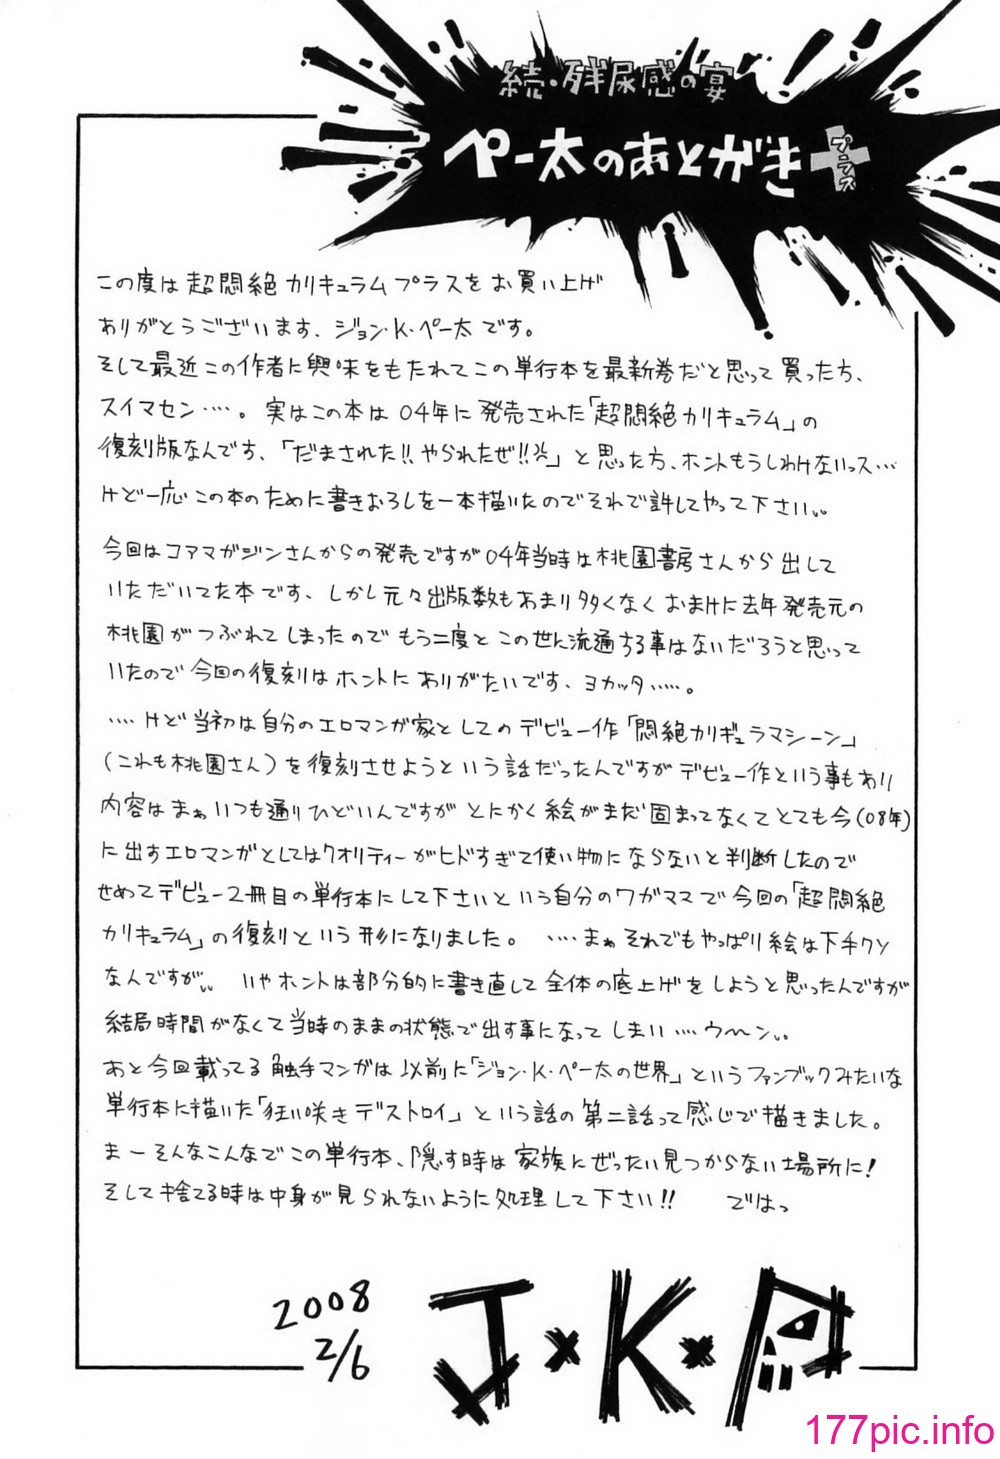 続・残尿感の宴
ペー太のあとがき
プラス
この度は超悶絶カリキュラムプラスをお買い上げ
ありがとうございます、ジョン・K・ペー太です。
そして最近この作者に興味をもたれてこの単行本を最新巻だと思って買ったち、
スイマセン‥‥。実はこの本は04年に発売された「超悶絶カリキュラム」の
復刻版なんです、「だまされた!!やられたぜ!!」と思った方、ホントもうしわけないっス…
けど一応この本のために書きおろしを一本描いたのでそれで許してやって下さい。
今回はコアマガジンさんからの発売ですが04年当時は桃園書房さんから出して
いただいてた本です、しかし元々出版数もあまり多くなくおまけに去年発売元の
桃園がつぶれてしまったのでもう二度とこの世に流通する事はないだろうと思って
いたので今回の復刻はホントにありがたいです、ヨカッタ‥‥。
‥‥けど当初は自分のエロマンガ家としてのデビュー作「悶絶カリギュラマシーン」
(これも桃園さん)を復刻させようという話だったんですがデビュー作という事もあり
内容はまぁいつも通りひどいんですがとにかく絵がまだ固まってなくてとても今(08年)
に出すエロマンガとしてはクオリティーがヒドすぎて使い物にならないと判断したので
せめてデビュー2冊目の単行本にして下さいという自分のワガママで今回の「超悶絶
カリキュラム」の復刻という形になりました。‥‥まぁそれでもやっぱり絵は下手クソ
なんですが。いやホントは部分的に書き直して全体の底上げをしようと思ったんですが
結局時間がなくて当時のままの状態で出す事になってしまい‥‥ウ〜ン。
あと今回載ってる触手マンガは以前に「ジョン・K・ペー太の世界」というファンブックみたいな
単行本に描いた「狂い咲きデストロイ」という話の第二話って感じで描きました。
まーそんなこんなでこの単行本、隠す時は家族にぜったい見つからない場所に!
そして捨てる時は中身が見られないように処理して下さい!! ではっ
2008
2/6
J×K×P
177pic.info